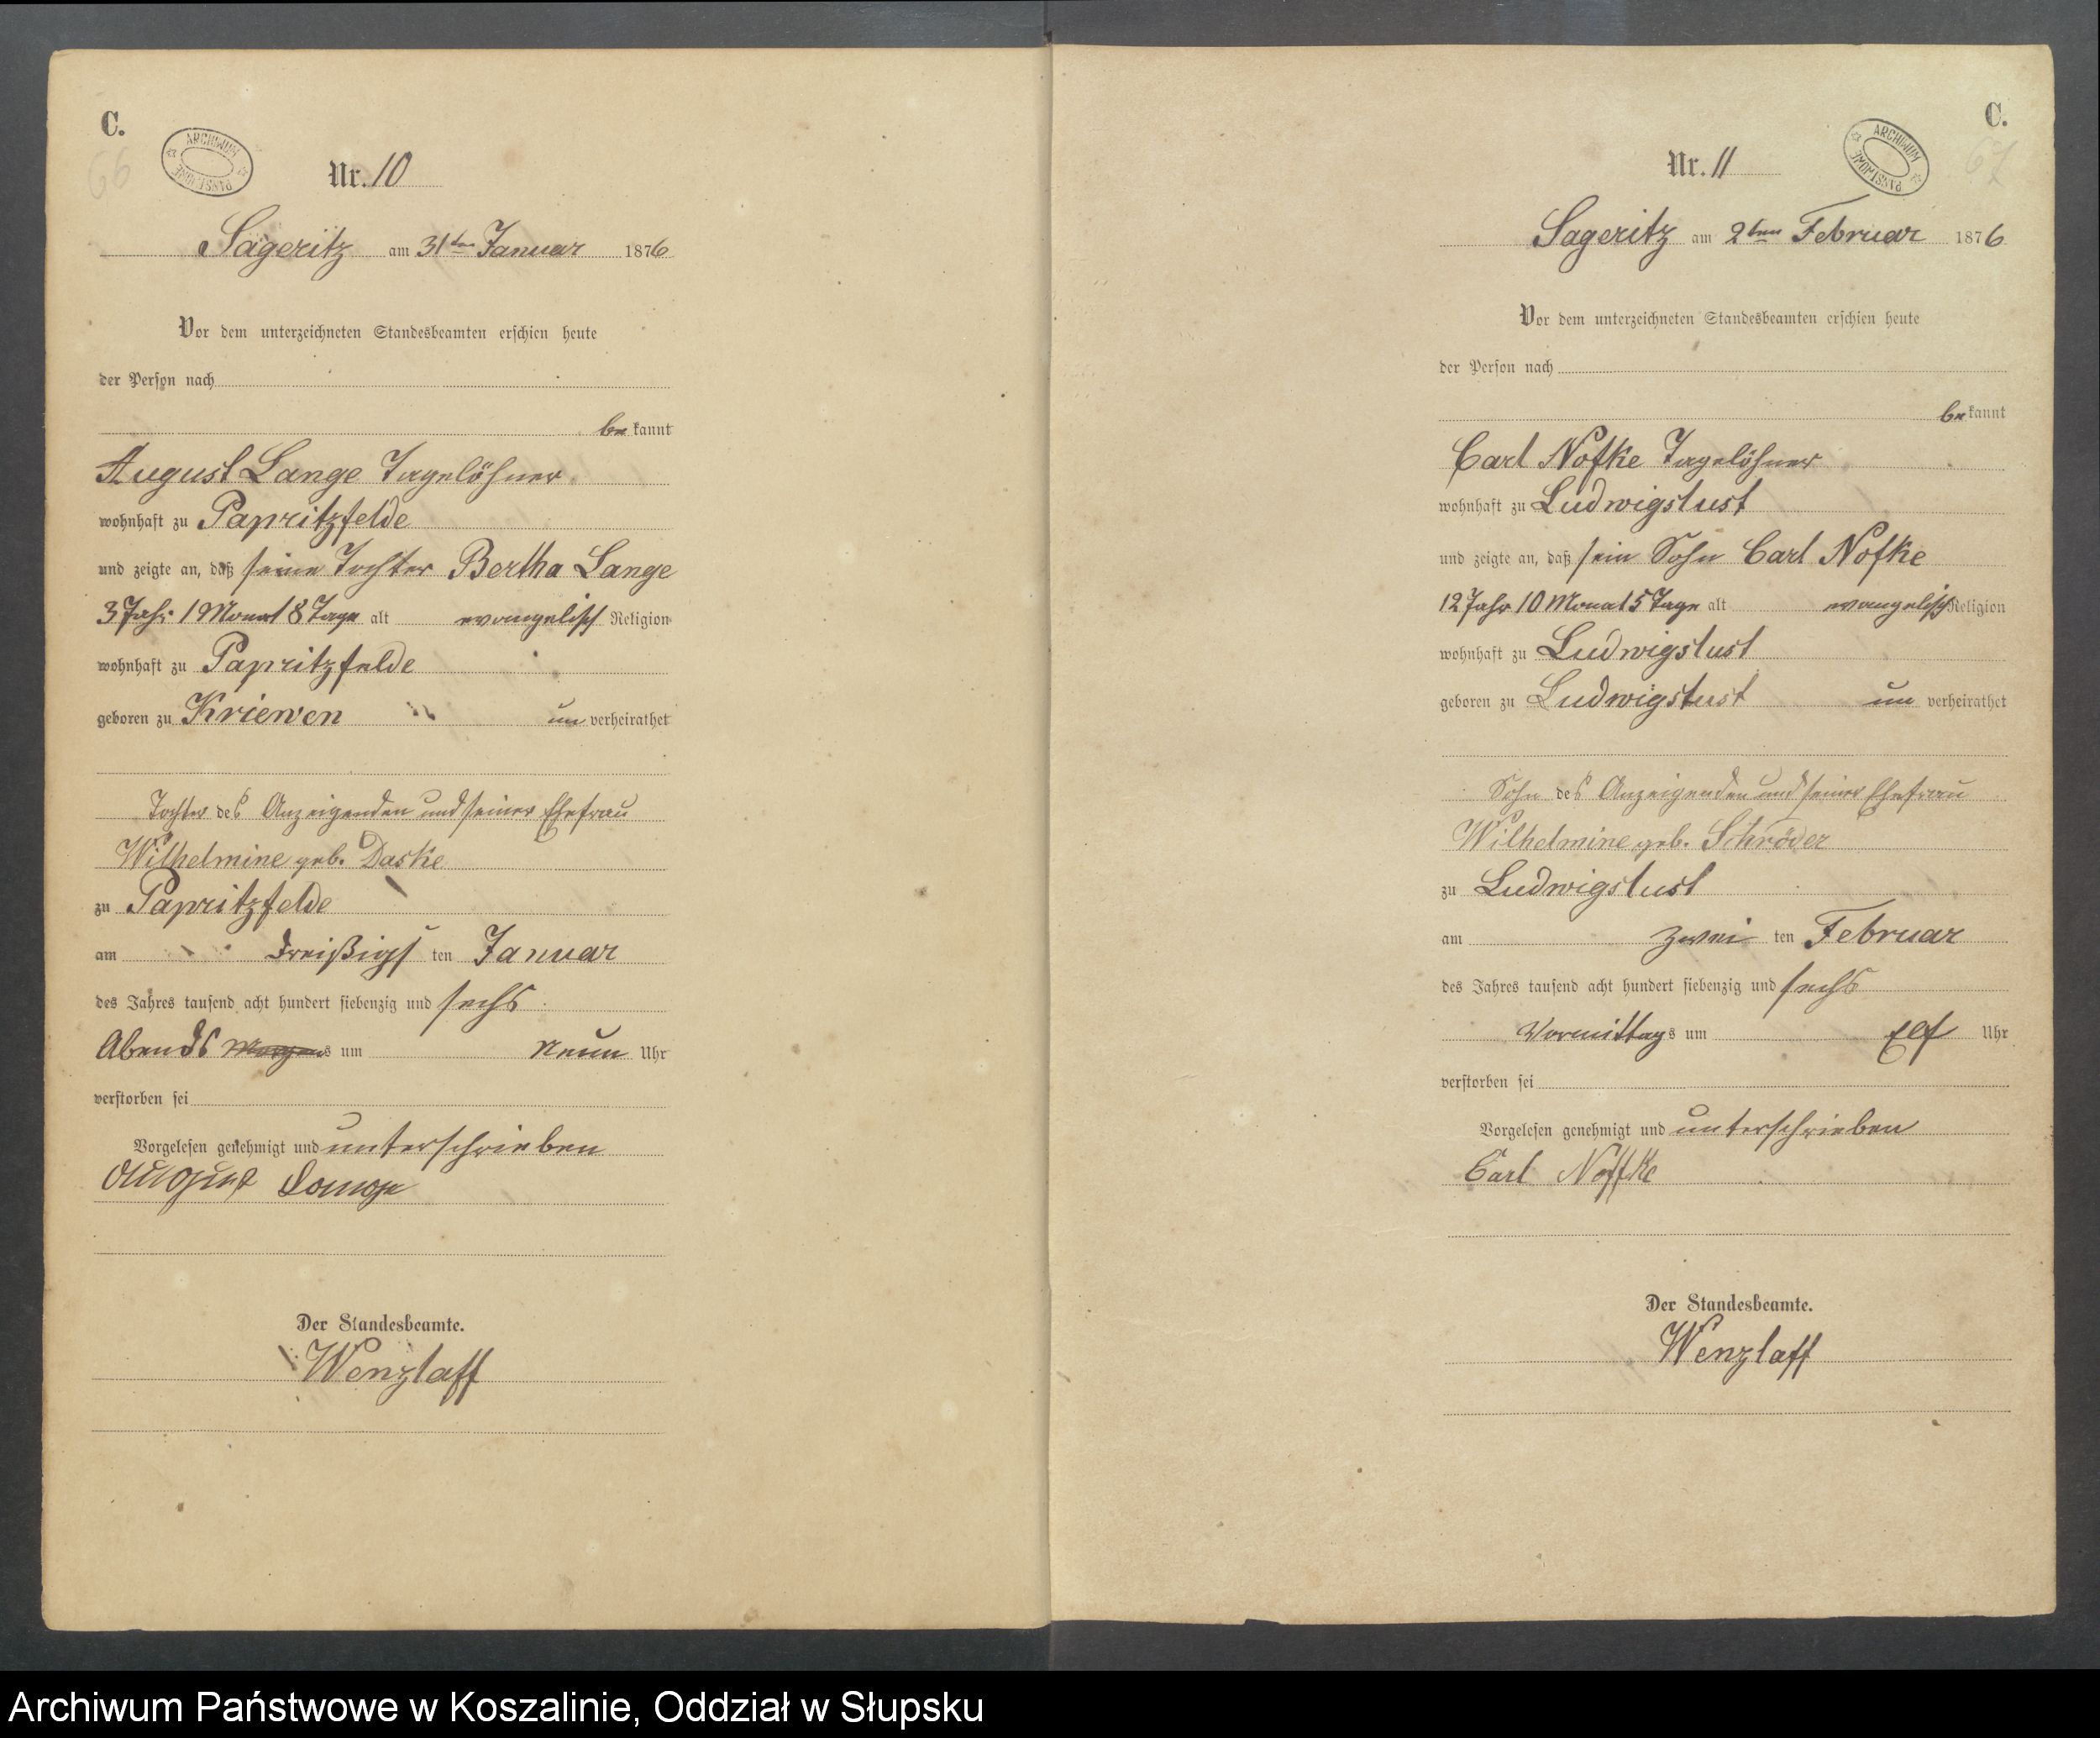 C.
66
ARCHIWUM PAŃSTWOWE
Nr. 10
Sageritz am 31ten Januar 1876
Vor dem unterzeichneten Standesbeamten erschien heute
der Person nach
bekannt
August Lange Tagelöhner
wohnhaft zu Papritzfelde
und zeigte an, daß seine Tochter Bertha Lange
3 Jahr 1 Monat 8 Tage alt evangelisch Religion
wohnhaft zu Papritzfelde
geboren zu Kriewen unverheirathet
Tochter des Anzeigenden und seiner Ehefrau
Wilhelmine geb. Daske
zu Papritzfelde
am dreißigsten Januar
des Jahres tausend acht hundert siebenzig und sechs
Abends Morgens um neun Uhr
verstorben sei
Vorgelesen genehmigt und unterschrieben
August Lange
Der Standesbeamte.
Wenzlaff
C.
67
ARCHIWUM PAŃSTWOWE
Nr. 11
Sageritz am 2ten Februar 1876
Vor dem unterzeichneten Standesbeamten erschien heute
der Person nach
bekannt
Carl Nofke Tagelöhner
wohnhaft zu Ludwigslust
und zeigte an, daß sein Sohn Carl Nofke
12 Jahr 10 Monat 5 Tage alt evangelisch Religion
wohnhaft zu Ludwigslust
geboren zu Ludwigslust unverheirathet
Sohn des Anzeigenden und seiner Ehefrau
Wilhelmine geb. Schröder
zu Ludwigslust
am zweiten Februar
des Jahres tausend acht hundert siebenzig und sechs
Vormittags um Elf Uhr
verstorben sei
Vorgelesen genehmigt und unterschrieben
Carl Noffke
Der Standesbeamte.
Wenzlaff
Archiwum Państwowe w Koszalinie, Oddział w Słupsku